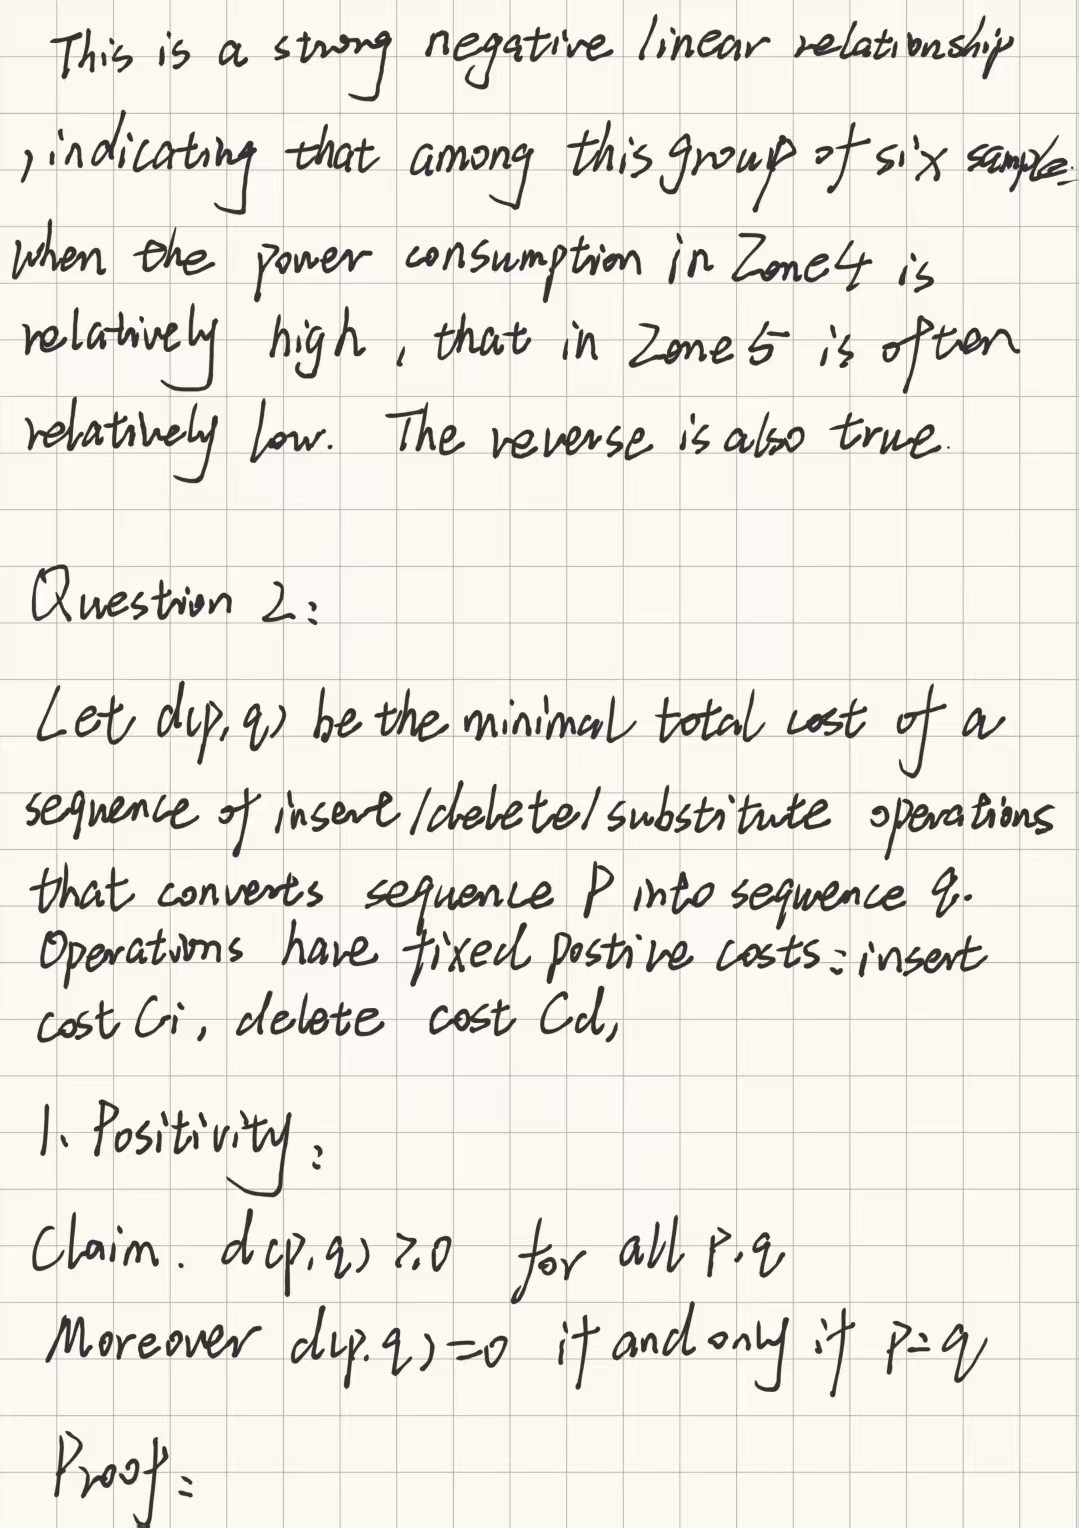 This is a strong negative linear relationship
, indicating that among this group of six sample.
when the power consumption in Zone 4 is
relatively high, that in Zone 5 is often
relatively low. The reverse is also true.
Question 2:
Let d(p,q) be the minimal total cost of a
sequence of insert/delete/substitute operations
that converts sequence P into sequence q.
Operations have fixed postive costs: insert
cost Ci, delete cost Cd,
1. Positivity:
Claim. d(p,q) ≥ 0 for all p,q
Moreover d(p,q) = 0 if and only if p = q
Proof: